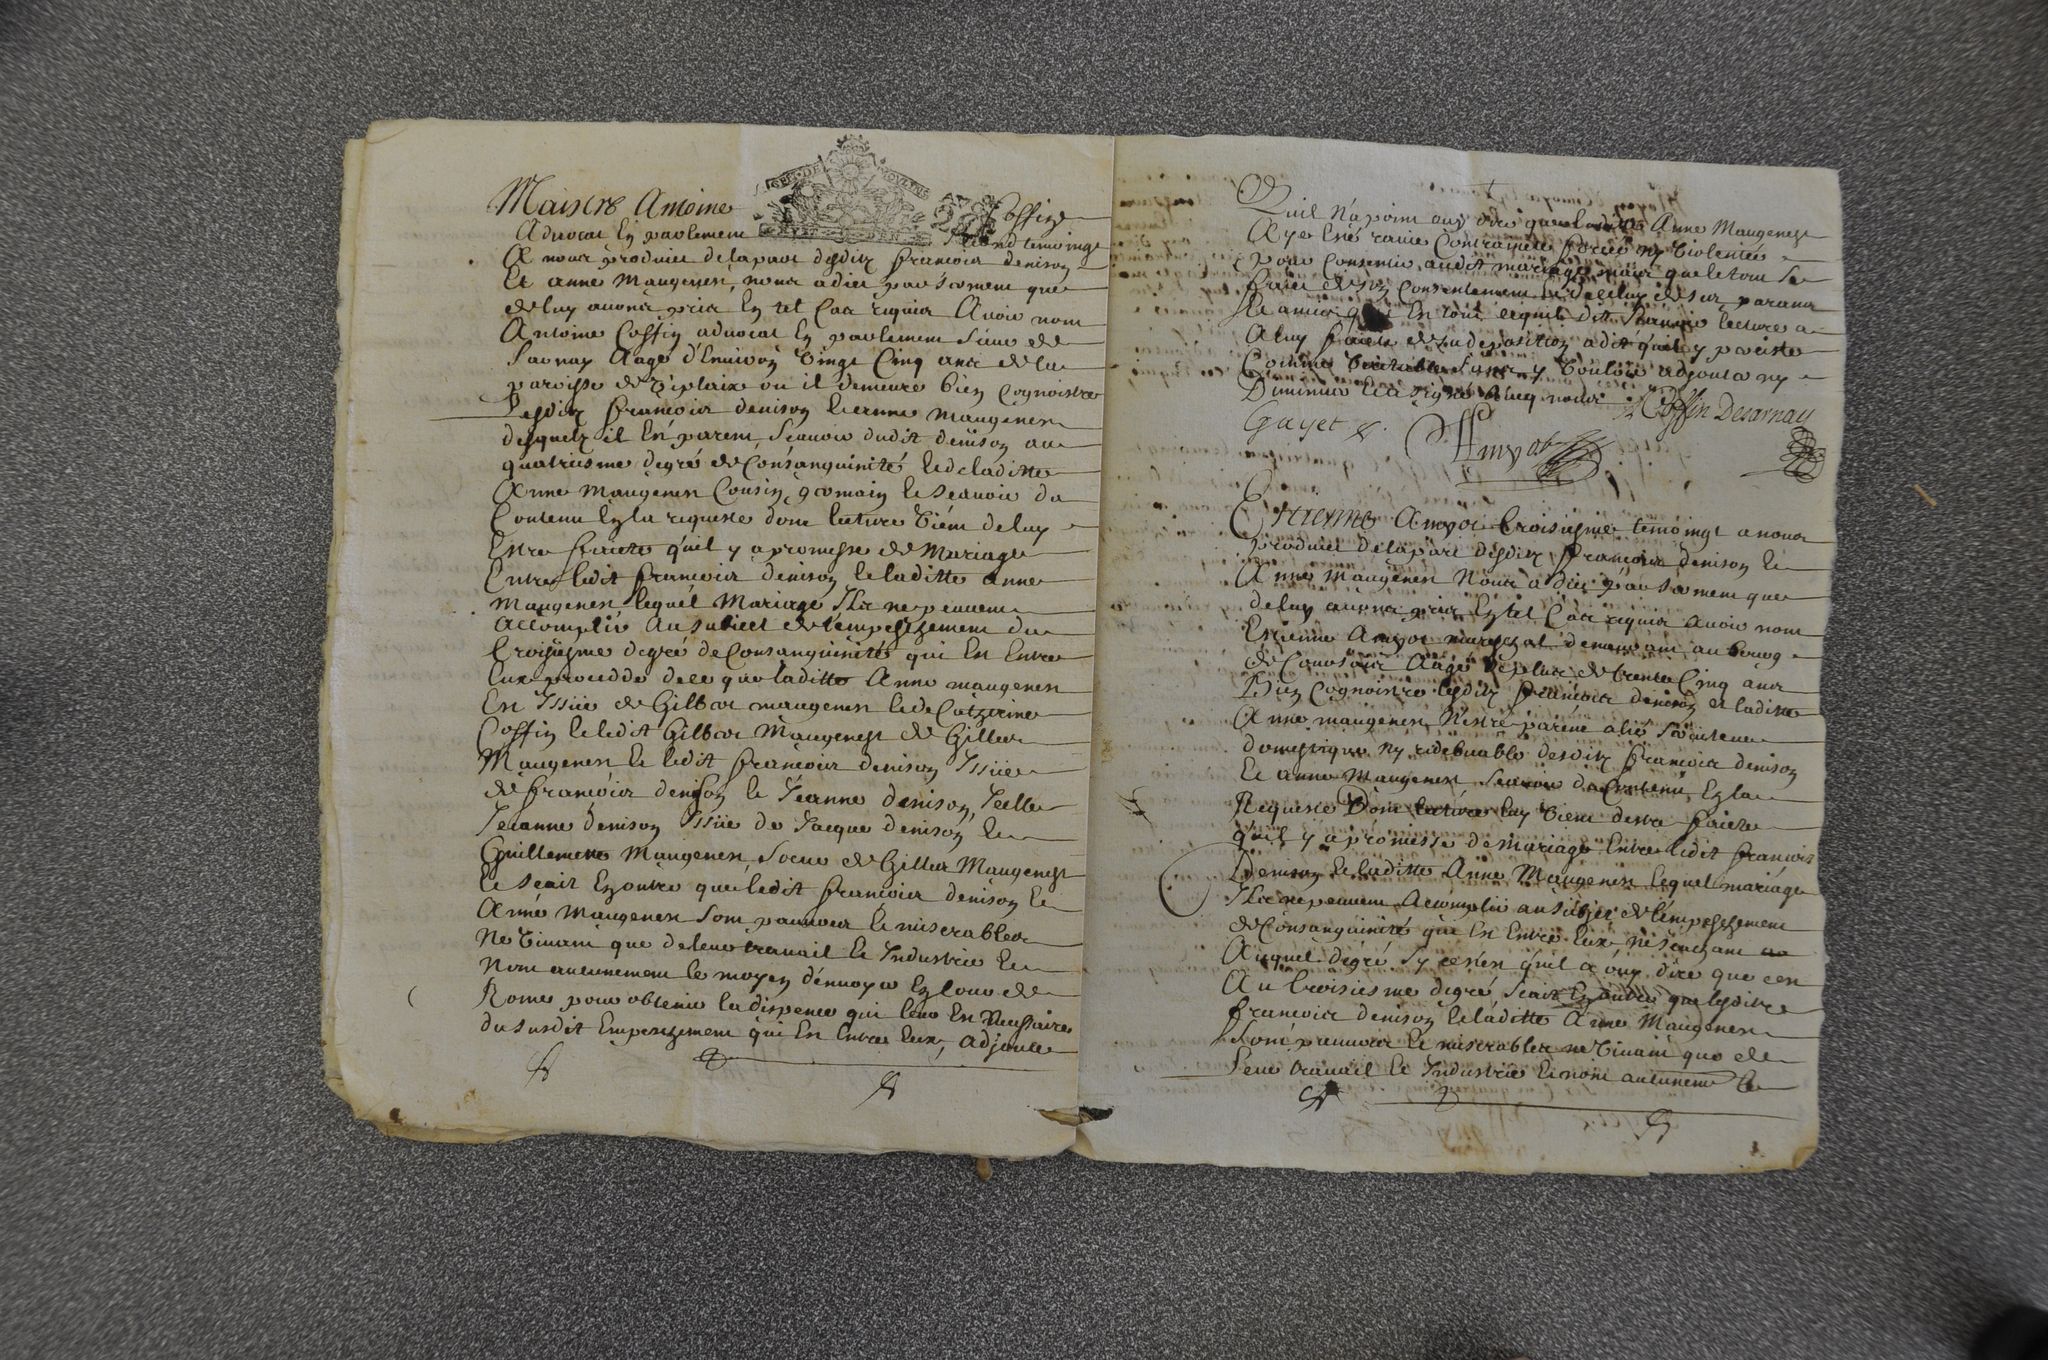 GEN. DE MOVLINS
Maistre Antoine Coffin
Advocat en parlement second temoingt
A nous produict de la part desditz francois denison
Et anne Maugenest, nous a dict par serment que
de luy avons pris en tel cas requis Avoir nom
Antoine Coffin advocat en parlement sieur de
Sarnay Aagé d'Environ vingt Cinq ans de la
paroisse de ou il demeure bien Cognoistre
Lesditz francois denison et anne maugenest
desquelz il est parent, scavoir dudit denison au
quatriesme degré de Consanguinité et de laditte
Anne Maugenest Cousin germain et scavoir du
Contenu en la requeste dont lecture vient de luy
Estre faicte qu'il y a promesse de Mariage
Entre ledit francois denison et laditte anne
maugenest, lequel Mariage Ils ne peuvent
accomplir Au subiect de l'empeschement du
troysiesme degré de Consanguinité qui est Entre
Eux procedde de ce que laditte Anne maugenest
Est Issüe de Gilbert maugenest et de Catherine
Coffin et ledit Gilbert Maugenest de Gilles
Maugenest et ledit francois denison Issüe
de francois denison et Jeanne denison, Icelle
Jeanne denison Issüe de Jacque denison et
Guillemette Maugenest soeur de Gilles Maugenest
Et scait En outre que ledit francois denison et
Anne Maugenest sont pauvres et miserables
Ne vivant que de leur travail et Industrie et
Nont aucunement le moyen d'envoyer En Cour de
Rome pour obtenir la dispence qui leur Est Necessaire
du susdit Empeschement qui Est Entre Eux, adjoute
Quil n'a point ouy dire que laditte Anne Maugenest
Aye Esté ravie Contrainte forcée ny violentée
pour Consentir audit mariage mais que le tout se
faict de son Consentement et de celuy de ses parans
Et amis qui Est tout ce quil dit scavoir lecture a
A luy faicte de sa deposition a dit quil y persiste
Comme veritable sans y vouloir adjouter ny
Diminuer Et a signé avec nous Coffin Desarnay
Gayet
Amyot
Estienne Amyot troisiesme temoingt a nous
produict de la part desditz francois denison et
Anne Maugenest Nous a dict par serment que
de luy avons pris En tel Cas requis avoir nom
Estienne Amyot mareschal demeurant au bourg
de Aagé de plus de trente Cinq ans
Bien Cognoistre lesditz francois denison et laditte
Anne maugenest N'estre parent alié serviteur
domestique ny redebvable desditz francois denison
Et anne Maugenest scavoir du Contenu En la
Requeste Dont lecture luy vient destre faicte
qu'il y a promesse de Mariage Entre ledit francois
Denison et laditte Anne Maugenest lequel mariage
Ils ne peuvent Accomplir au subjet de l'empeschement
de Consanguinité qui Est Entre Eux, ne scachant
Auquel degré sy ce n'est qu'il a ouy dire que cest
Au troisiesme degré scait En outre que lesditz
francois denison et laditte Anne Maugenest
sont pauvres et miserables ne vivant que de
leur travail et Industrie et nont aucunement le